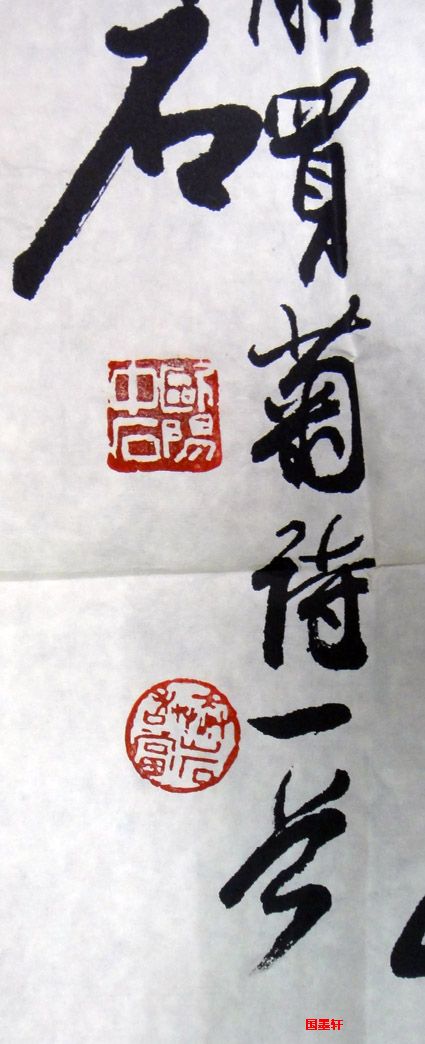 買菊詩一首
石
歐陽中石
国墨轩